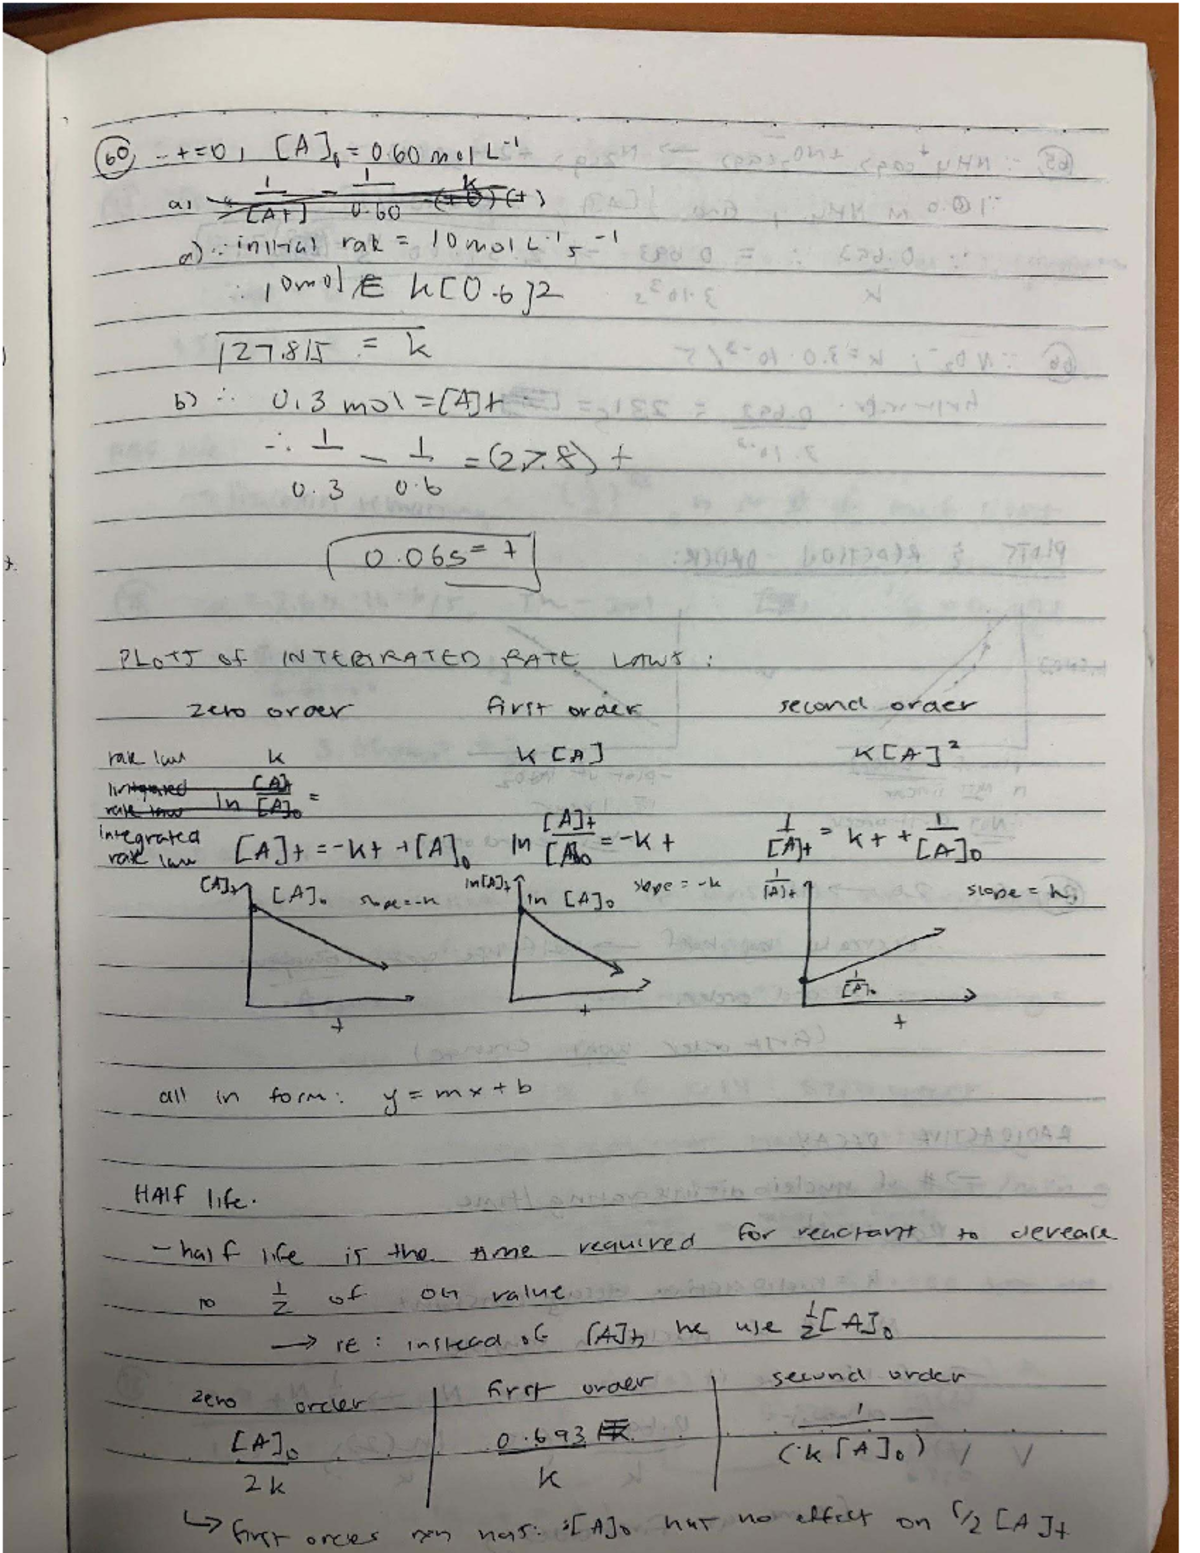 60) - t=0, [A]₀ = 0.60 mol L⁻¹
a) 1/[At] - 1/0.60 k (t)
a) ∴ initial rate = 10 mol L⁻¹s⁻¹
∴ 10mol = k[0.6]2
27.8 = k
b) ∴ 0.3 mol = [A]t
∴ 1/0.3 - 1/0.6 = (27.8) t
0.06s = t
PLOTS of INTEGRATED RATE LAWS:
zero order first order second order
rate law k k[A] k[A]²
integrated rate law ln [A]t/[A]₀ =
integrated rate law [A]t = -kt + [A]₀ ln [A]t/[A]₀ = -kt 1/[A]t = kt + 1/[A]₀
[A]t [A]₀ slope = -k ln[A]t ln [A]₀ slope = -k 1/[A]t slope = k
1/[A]₀
t t t
all in form: y = mx + b
HAlf life.
- half life is the time required for reactant to decrease
to 1/2 of OG value
→ IE: instead of [A]t, we use 1/2[A]₀
zero order first order second order
[A]₀/2k 0.693/k 1/(k[A]₀)
↳ first order rxn has: [A]₀ has no effect on 1/2 [A]t